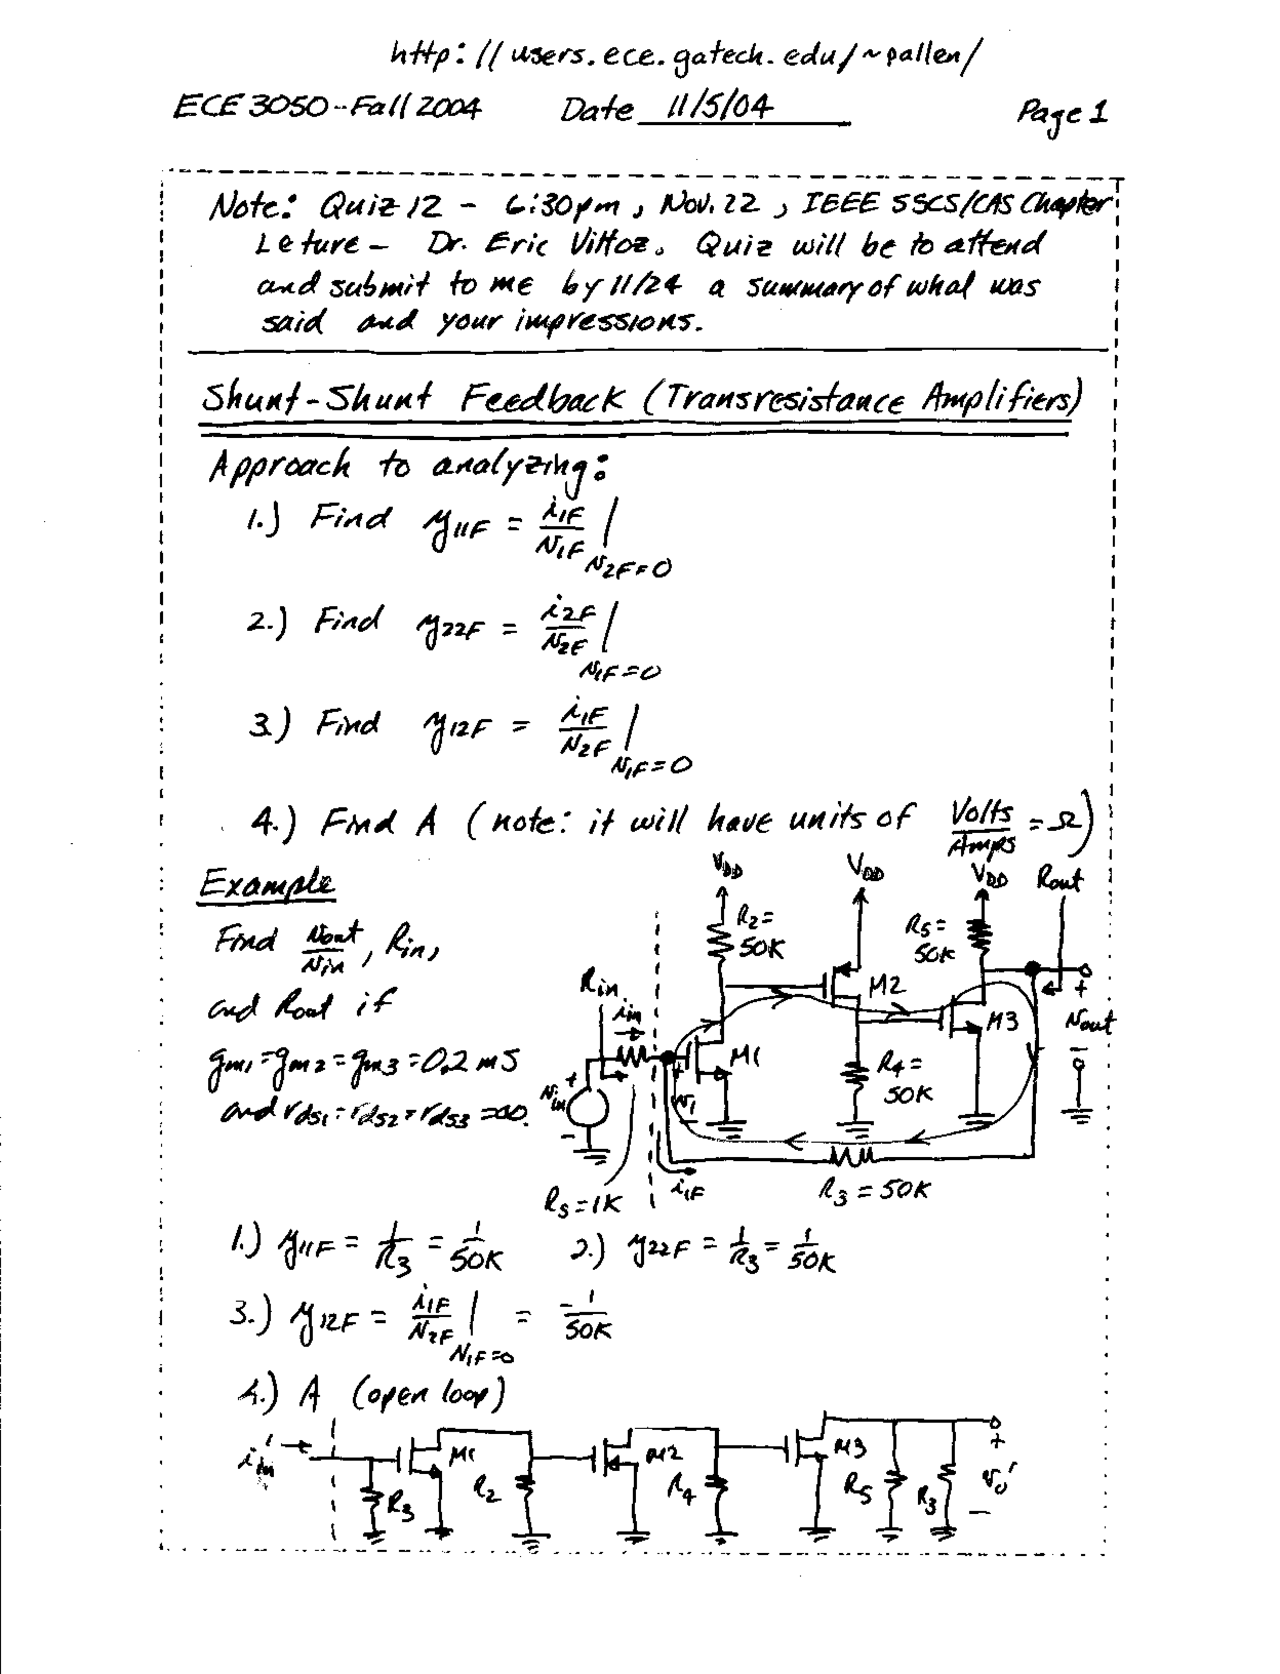 http://users.ece.gatech.edu/~pallen/
ECE 3050--Fall 2004 Date 11/5/04 Page 1
Note: Quiz 12 - 6:30pm, Nov. 22, IEEE SSCS/CAS Chapter
Leture - Dr. Eric Vittoz. Quiz will be to attend
and submit to me by 11/24 a summary of what was
said and your impressions.
Shunt-Shunt Feedback (Transresistance Amplifiers)
Approach to analyzing:
1.) Find y11F = i1F/v1F | v2F=0
2.) Find y22F = i2F/v2F | v1F=0
3.) Find y12F = i1F/v2F | v1F=0
4.) Find A (note: it will have units of Volts/Amps = Ω)
Example
Find vout/vin, Rin,
and Rout if
gm1=gm2=gm3=0.2mS
and rds1=rds2=rds3=∞.
VDD VDD VDD Rout
R2=
50K
R5=
50K
M2
Rin
iin
M1
M3
vout
+
-
vin
+
-
+
v1
-
R4=
50K
Rs=1K
i1F
R3=50K
1.) y11F = 1/R3 = 1/50K 2.) y22F = 1/R3 = 1/50K
3.) y12F = i1F/v2F | v1F=0 = -1/50K
4.) A (open loop)
iin' R3 M1 R2 M2 R4 M3 R5 R3 + vo' -